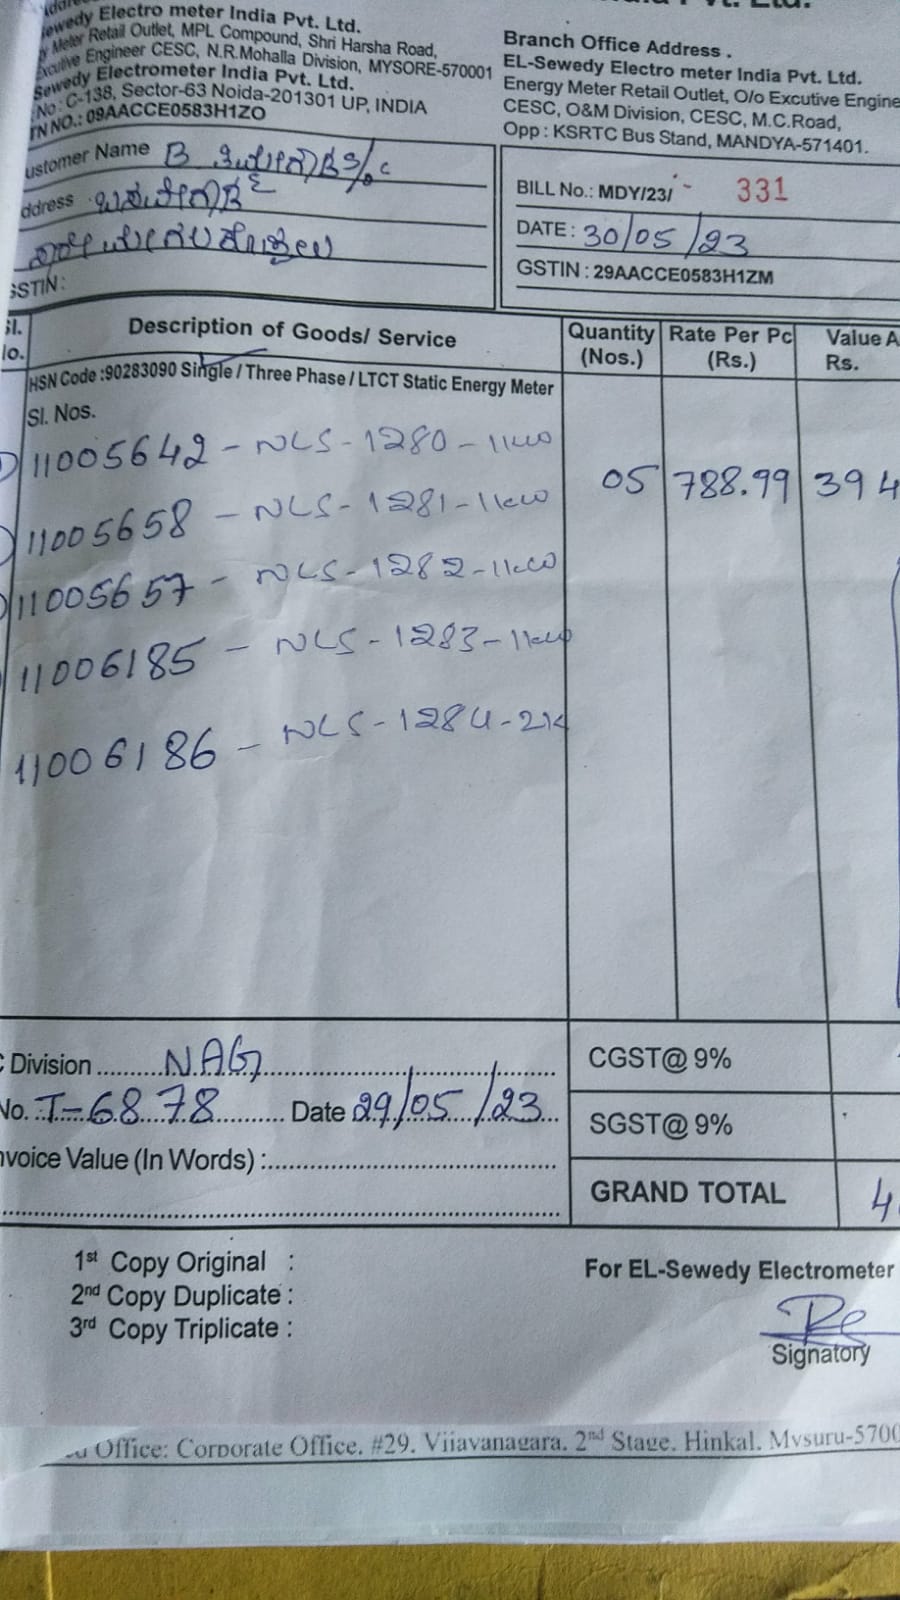 Electro meter India Pvt. Ltd.
Meter Retail Outlet, MPL Compound, Shri Harsha Road,
Engineer CESC, N.R.Mohalla Division, MYSORE-570001
Electrometer India Pvt. Ltd.
No : C-138, Sector-63 Noida-201301 UP, INDIA
NO.: 09AACCE0583H1ZO
Branch Office Address .
EL-Sewedy Electro meter India Pvt. Ltd.
Energy Meter Retail Outlet, O/o Excutive Engine
CESC, O&M Division, CESC, M.C.Road,
Opp : KSRTC Bus Stand, MANDYA-571401.
ustomer Name B
ddress
GSTIN :
BILL No.: MDY/23/ 331
DATE : 30/05/23
GSTIN : 29AACCE0583H1ZM
Sl. No. Description of Goods/ Service Quantity (Nos.) Rate Per Pc (Rs.) Value A Rs.
HSN Code :90283090 Single / Three Phase / LTCT Static Energy Meter
Sl. Nos.
11005642 - NLS - 1280 - 11kw
05 788.99 394
11005658 - NLS - 1281 - 11kw
11005657 - NLS - 1282 - 11kw
11006185 - NLS - 1283 - 11kw
11006186 - NLS - 1284 - 2k
Division ..........NAG
No. T-6878 Date 29/05/23
nvoice Value (In Words) :
CGST@ 9%
SGST@ 9%
GRAND TOTAL 4
1st Copy Original :
2nd Copy Duplicate :
3rd Copy Triplicate :
For EL-Sewedy Electrometer
Signatory
Office: Corporate Office, #29, Vijayanagara, 2nd Stage, Hinkal, Mysuru-5700